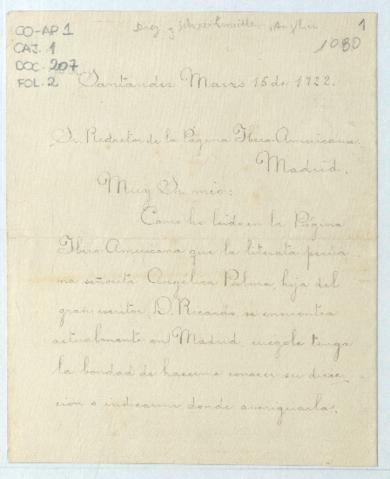 CO-AP 1
CAJ. 1
DOC. 207
FOL. 2
1
1080
Santander Marzo 15 de 1922.
Sr. Redactor de la Página Ibero-Americana.
Madrid.
Muy Sr. mío:
Como he leido en la Página
Ibero Americana que la literata perua
na señorita Angélica Palma, hija del
gran escritor, D. Ricardo se encuentra
actualmente en Madrid, ruegole tenga
la bondad de hacerme conocer su direc-
cion o indicarme donde averiguarla.